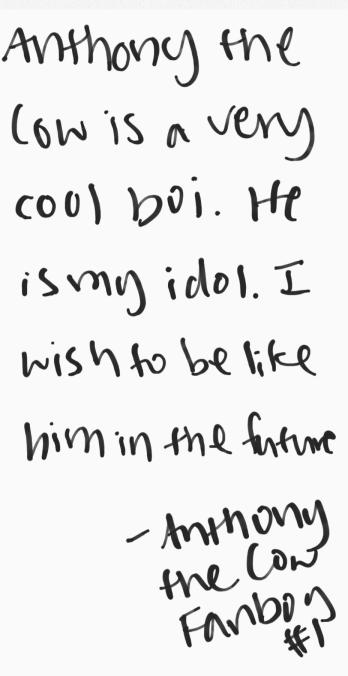 Anthony the
Cow is a very
cool boi. He
is my idol. I
wish to be like
him in the future
- Anthony
the Cow
Fanboy
#1